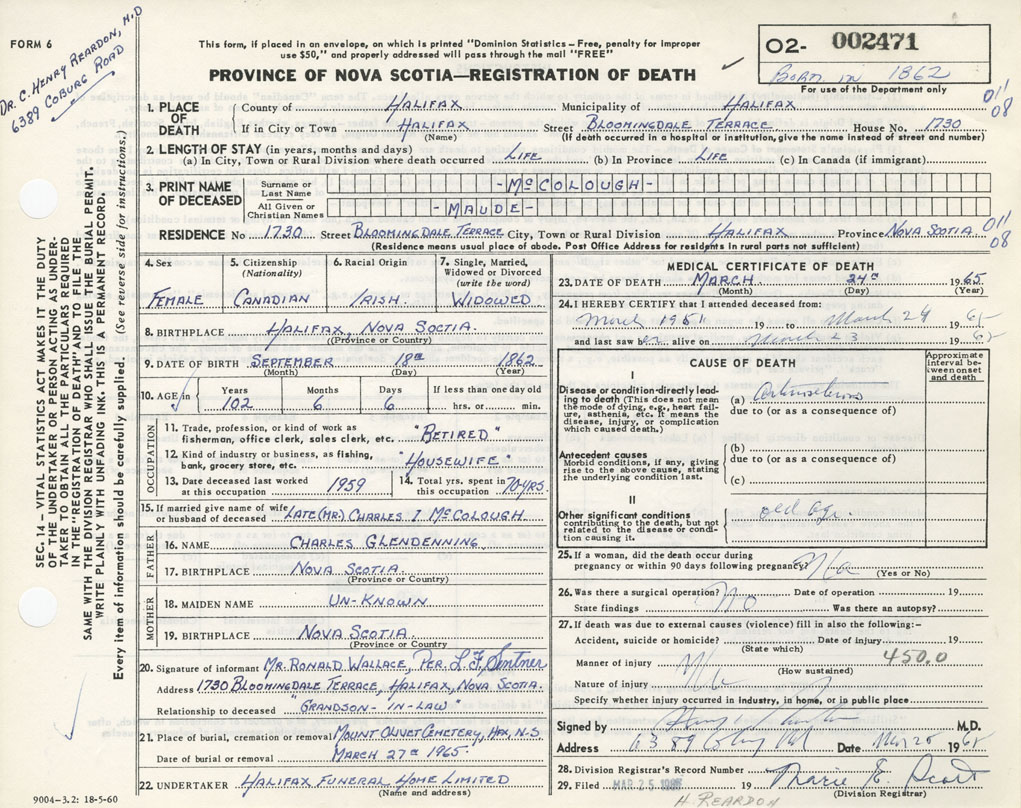 FORM 6
DR. C. HENRY REARDON, M.D
6389 COBURG ROAD
This form, if placed in an envelope, on which is printed "Dominion Statistics – Free, penalty for improper
use $50," and properly addressed will pass through the mail "FREE"
PROVINCE OF NOVA SCOTIA—REGISTRATION OF DEATH
02- 002471
BORN IN 1862
For use of the Department only
1. PLACE OF DEATH County of HALIFAX Municipality of HALIFAX 01/08
If in City or Town HALIFAX Street BLOOMINGDALE TERRACE House No. 1730
(Name) (If death occurred in a hospital or institution, give the name instead of street and number)
2. LENGTH OF STAY (in years, months and days)
(a) In City, Town or Rural Division where death occurred LIFE (b) In Province LIFE (c) In Canada (if immigrant)
3. PRINT NAME OF DECEASED
Surname or Last Name -McCOLOUGH-
All Given or Christian Names -MAUDE-
RESIDENCE No 1730 Street BLOOMINGDALE TERRACE City, Town or Rural Division HALIFAX Province NOVA SCOTIA 01/08
(Residence means usual place of abode. Post Office Address for residents in rural parts not sufficient)
4. Sex FEMALE
5. Citizenship (Nationality) CANADIAN
6. Racial Origin IRISH
7. Single, Married, Widowed or Divorced (write the word) WIDOWED
8. BIRTHPLACE HALIFAX, NOVA SOCTIA
(Province or Country)
9. DATE OF BIRTH SEPTEMBER 18th 1862
(Month) (Day) (Year)
10. AGE in Years Months Days If less than one day old
102 6 6 hrs. or min.
OCCUPATION
11. Trade, profession, or kind of work as
fisherman, office clerk, sales clerk, etc. "RETIRED"
12. Kind of industry or business, as fishing,
bank, grocery store, etc. "HOUSEWIFE"
13. Date deceased last worked at this occupation 1959
14. Total yrs. spent in this occupation 70 YRS.
15. If married give name of wife
or husband of deceased LATE (MR.) CHARLES I McCOLOUGH
FATHER
16. NAME CHARLES GLENDENNING
17. BIRTHPLACE NOVA SCOTIA
(Province or Country)
MOTHER
18. MAIDEN NAME UN-KNOWN
19. BIRTHPLACE NOVA SCOTIA
(Province or Country
20. Signature of informant MR. RONALD WALLACE, PER. L.F. Sentner
Address 1730 BLOOMINGDALE TERRACE, HALIFAX, NOVA SCOTIA.
Relationship to deceased "GRANDSON-IN-LAW"
21. Place of burial, cremation or removal MOUNT OLIVET CEMETERY, HFX, N.S.
Date of burial or removal MARCH 27th 1965
22. UNDERTAKER HALIFAX FUNERAL HOME LIMITED
(Name and address)
MEDICAL CERTIFICATE OF DEATH
23. DATE OF DEATH MARCH 24th 1965
(Month) (Day) (Year)
24. I HEREBY CERTIFY that I attended deceased from:
March 1951 19 to March 24 1965
and last saw her alive on March 23 1965
CAUSE OF DEATH
Approximate interval between onset and death
I
Disease or condition directly leading
to death (This does not mean
the mode of dying, e.g., heart failure,
asthenia, etc. It means the
disease, injury, or complication
which caused death.)
(a)
due to (or as a consequence of)
Antecedent causes
Morbid conditions, if any, giving
rise to the above cause, stating
the underlying condition last.
(b)
due to (or as a consequence of)
(c)
II
Other significant conditions
contributing to the death, but not
related to the disease or condition
causing it.
old age
25. If a woman, did the death occur during
pregnancy or within 90 days following pregnancy? No
(Yes or No)
26. Was there a surgical operation? No Date of operation 19
State findings Was there an autopsy?
27. If death was due to external causes (violence) fill in also the following:-
Accident, suicide or homicide? Date of injury 19
(State which)
Manner of injury 450.0
(How sustained)
Nature of injury
Specify whether injury occurred in industry, in home, or in public place
Signed by M.D.
Address 6389 Coburg Rd Date Mar 25 1965
28. Division Registrar's Record Number
29. Filed MAR 25 1965 19 Marie E. Scott
(Division Registrar)
H. REARDON
9004–3.2: 18-5-60
SEC. 14 – VITAL STATISTICS ACT MAKES IT THE DUTY
OF THE UNDERTAKER OR PERSON ACTING AS UNDER-
TAKER TO OBTAIN ALL THE PARTICULARS REQUIRED
IN THE "REGISTRATION OF DEATH" AND TO FILE THE
SAME WITH THE DIVISION REGISTRAR WHO SHALL ISSUE THE BURIAL PERMIT.
WRITE PLAINLY WITH UNFADING INK. THIS IS A PERMANENT RECORD.
Every item of information should be carefully supplied. (See reverse side for instructions.)